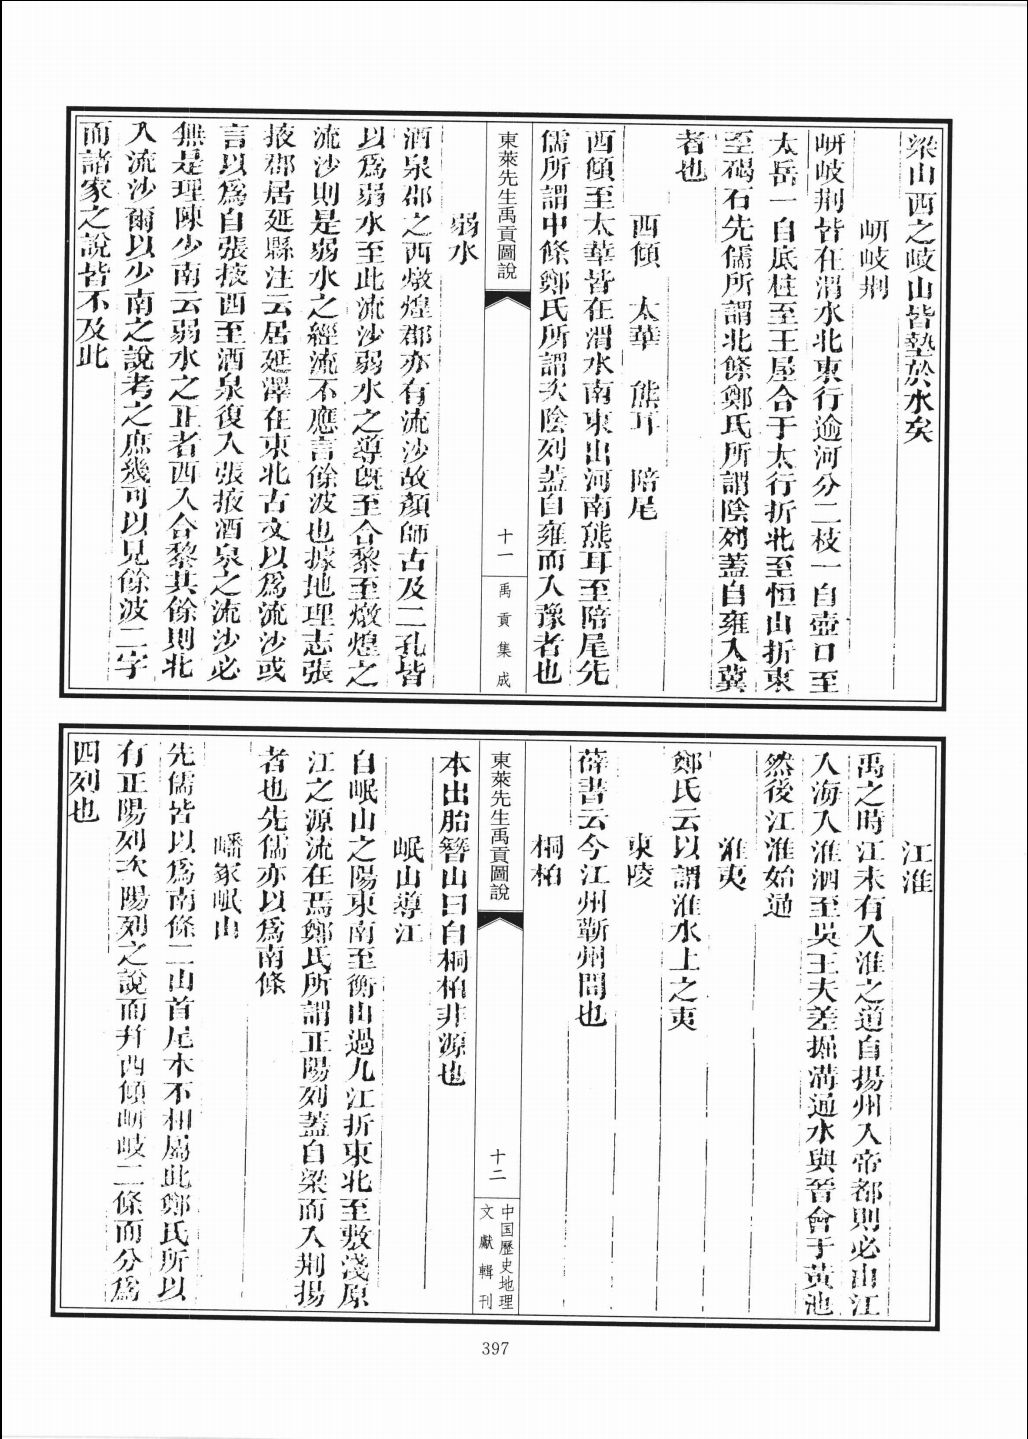 梁山西之岐山皆墊於水矣
岍岐荆
岍岐荆皆在渭水北東行逾河分二枝一自壺口至
太岳一自底柱至王屋合于太行折北至恒山折東
至碣石先儒所謂北條鄭氏所謂陰列蓋自雍入冀
者也
西傾　太華　熊耳　陪尾
西傾至太華皆在渭水南東出河南熊耳至陪尾先
儒所謂中條鄭氏所謂次陰列蓋自雍而入豫者也
東萊先生禹貢圖說
十一
禹貢集成
弱水
酒泉郡之西燉煌郡亦有流沙故顏師古及二孔皆
以爲弱水至此流沙弱水之導旣至合黎至燉煌之
流沙則是弱水之經流不應言餘波也據地理志張
掖郡居延縣注云居延澤在東北古文以爲流沙或
言以爲自張掖西至酒泉復入張掖酒泉之流沙必
無是理陳少南云弱水之正者西入合黎其餘則北
入流沙爾以少南之說考之庶幾可以見餘波二字
而諸家之說皆不及此
江淮
禹之時江未有入淮之道自揚州入帝都則必由江
入海入淮泗至吳王夫差掘溝通水與晉會于黃池
然後江淮始通
淮夷
鄭氏云以謂淮水上之夷
東陵
薛書云今江州蘄州間也
桐柏
東萊先生禹貢圖說
十二
中国歷史地理
文獻輯刊
本出胎簪山曰自桐柏非源也
岷山導江
自岷山之陽東南至衡山過九江折東北至敷淺原
江之源流在焉鄭氏所謂正陽列蓋自梁而入荆揚
者也先儒亦以爲南條
嶓冢岷山
先儒皆以爲南條二山首尾本不相屬此鄭氏所以
有正陽列次陽列之說而并西傾岍岐二條而分爲
四列也
397